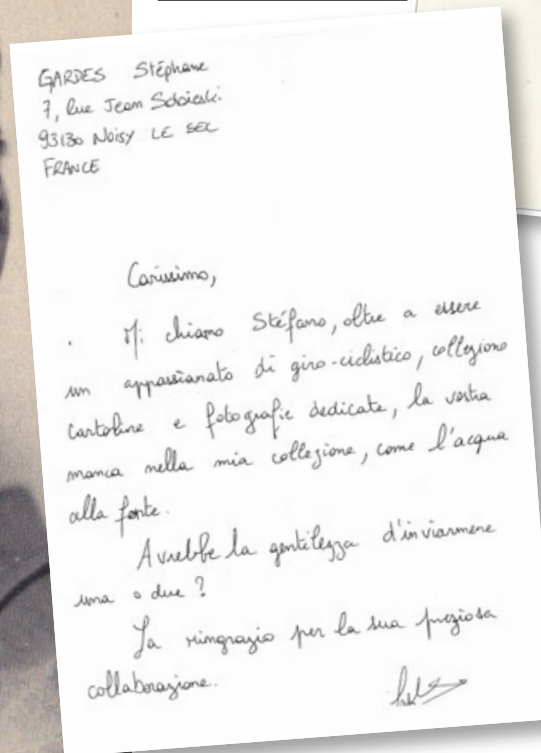 GARDES Stéphane
7, Rue Jean Sobieski.
93130 NOISY LE SEC
FRANCE
Carissimo,
Mi chiamo Stéfano, oltre a essere
un appassianato di giro-ciclistico, colleziono
cartoline e fotografie dedicate, la vostra
manca nella mia collezione, come l'acqua
alla fonte.
Avrebbe la gentilezza d'inviarmene
una o due ?
La ringrazio per la sua preziosa
collaborazione.